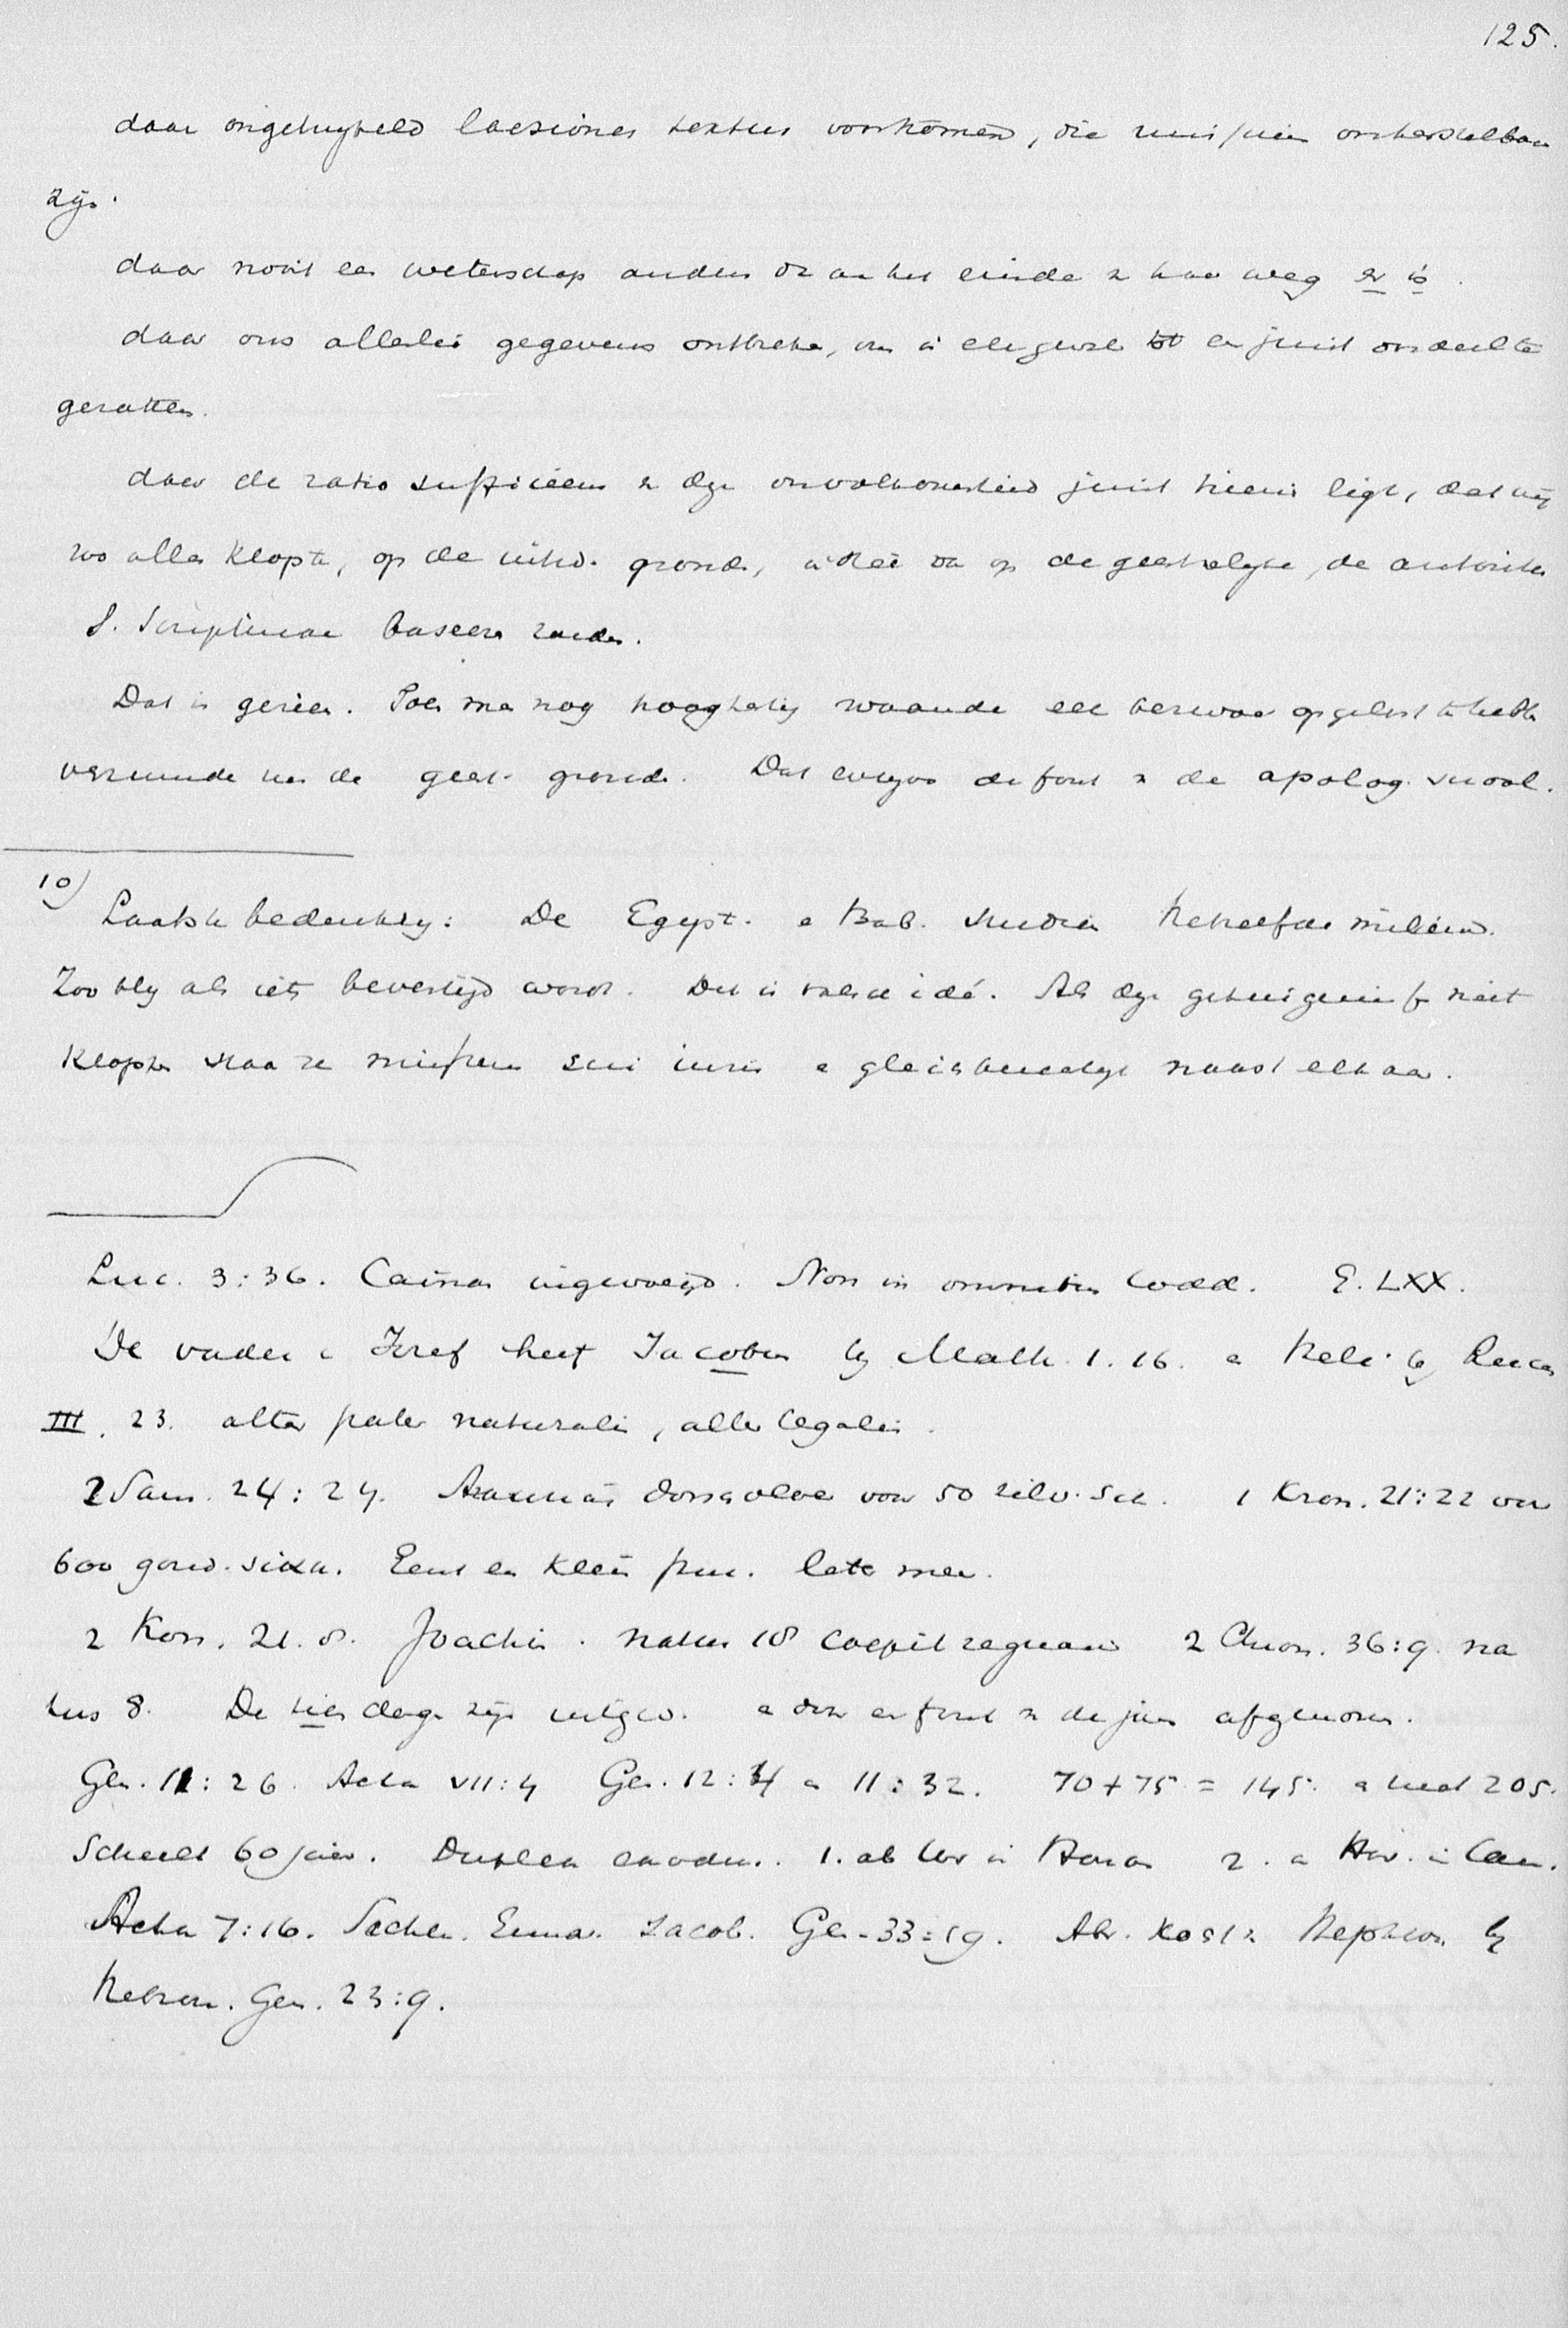 125.
daar ongetwijfeld laesiones textus voorkomen, die misschien onherstelbaar
zijn.
daar nooit een wetenschap anders dan aan het einde van haar weg er is.
daar ons allerlei gegevens ontbreken, om in elk geval tot een juist oordeel te
geraken.
daar de ratio sufficiens van deze onvolkomenheid juist hierin ligt, dat wij
zoo alles klopte, op de uitw. gronden, in stee van op de geestelijke, de autoriteit
S. Scripturae baseeren zouden.
Dat is gezien. Toen men nog hooghartig waande elk bezwaar opgelost te hebben
verzuimde men de geest. gronden. Dat was de fout van de apolog. school.
10) Laatste bedenking: De Egypt. en Bab. studien
Zoo blij als iets bevestigd wordt. Dit is valsche idé. Als deze getuigenissen niet
kloppen staan ze misschien sui iuris en gleichberechtigt naast elkaar.
Luc. 3:36. Cainan ingevoegd. Non in omnibus Codd. E. LXX.
De vader v. Jozef heet Jacobus bij Matth. 1.16. en Heli bij Lucas
III. 23. alter pater naturalis, alter legalis.
2 Sam. 24:24. Arauna's dorschvloer voor 50 zilv. sik. 1 Kron. 21:22 voor
600 goud. sikk. Eerst een klein later meer.
2 Kon. 21. 8. Joachin. natus 18 coepit regnare 2 Chron. 36:9. na
tus 8. De tien dagen zijn uitgev. en door een fout van de jaren afgenomen.
Gen. 11:26. Acta VII:4 Gen. 12:4 en 11:32. 70 + 75 = 145. en niet 205.
Scheelt 60 jaar. Duplex exodus. 1. ab Ur in Haran 2. a Har. in Can.
Acta 7:16. Sichem. Emmor. Jacob. Gen. 33:19. Abr. kocht van Hephron bij
Hebron. Gen. 23:9.